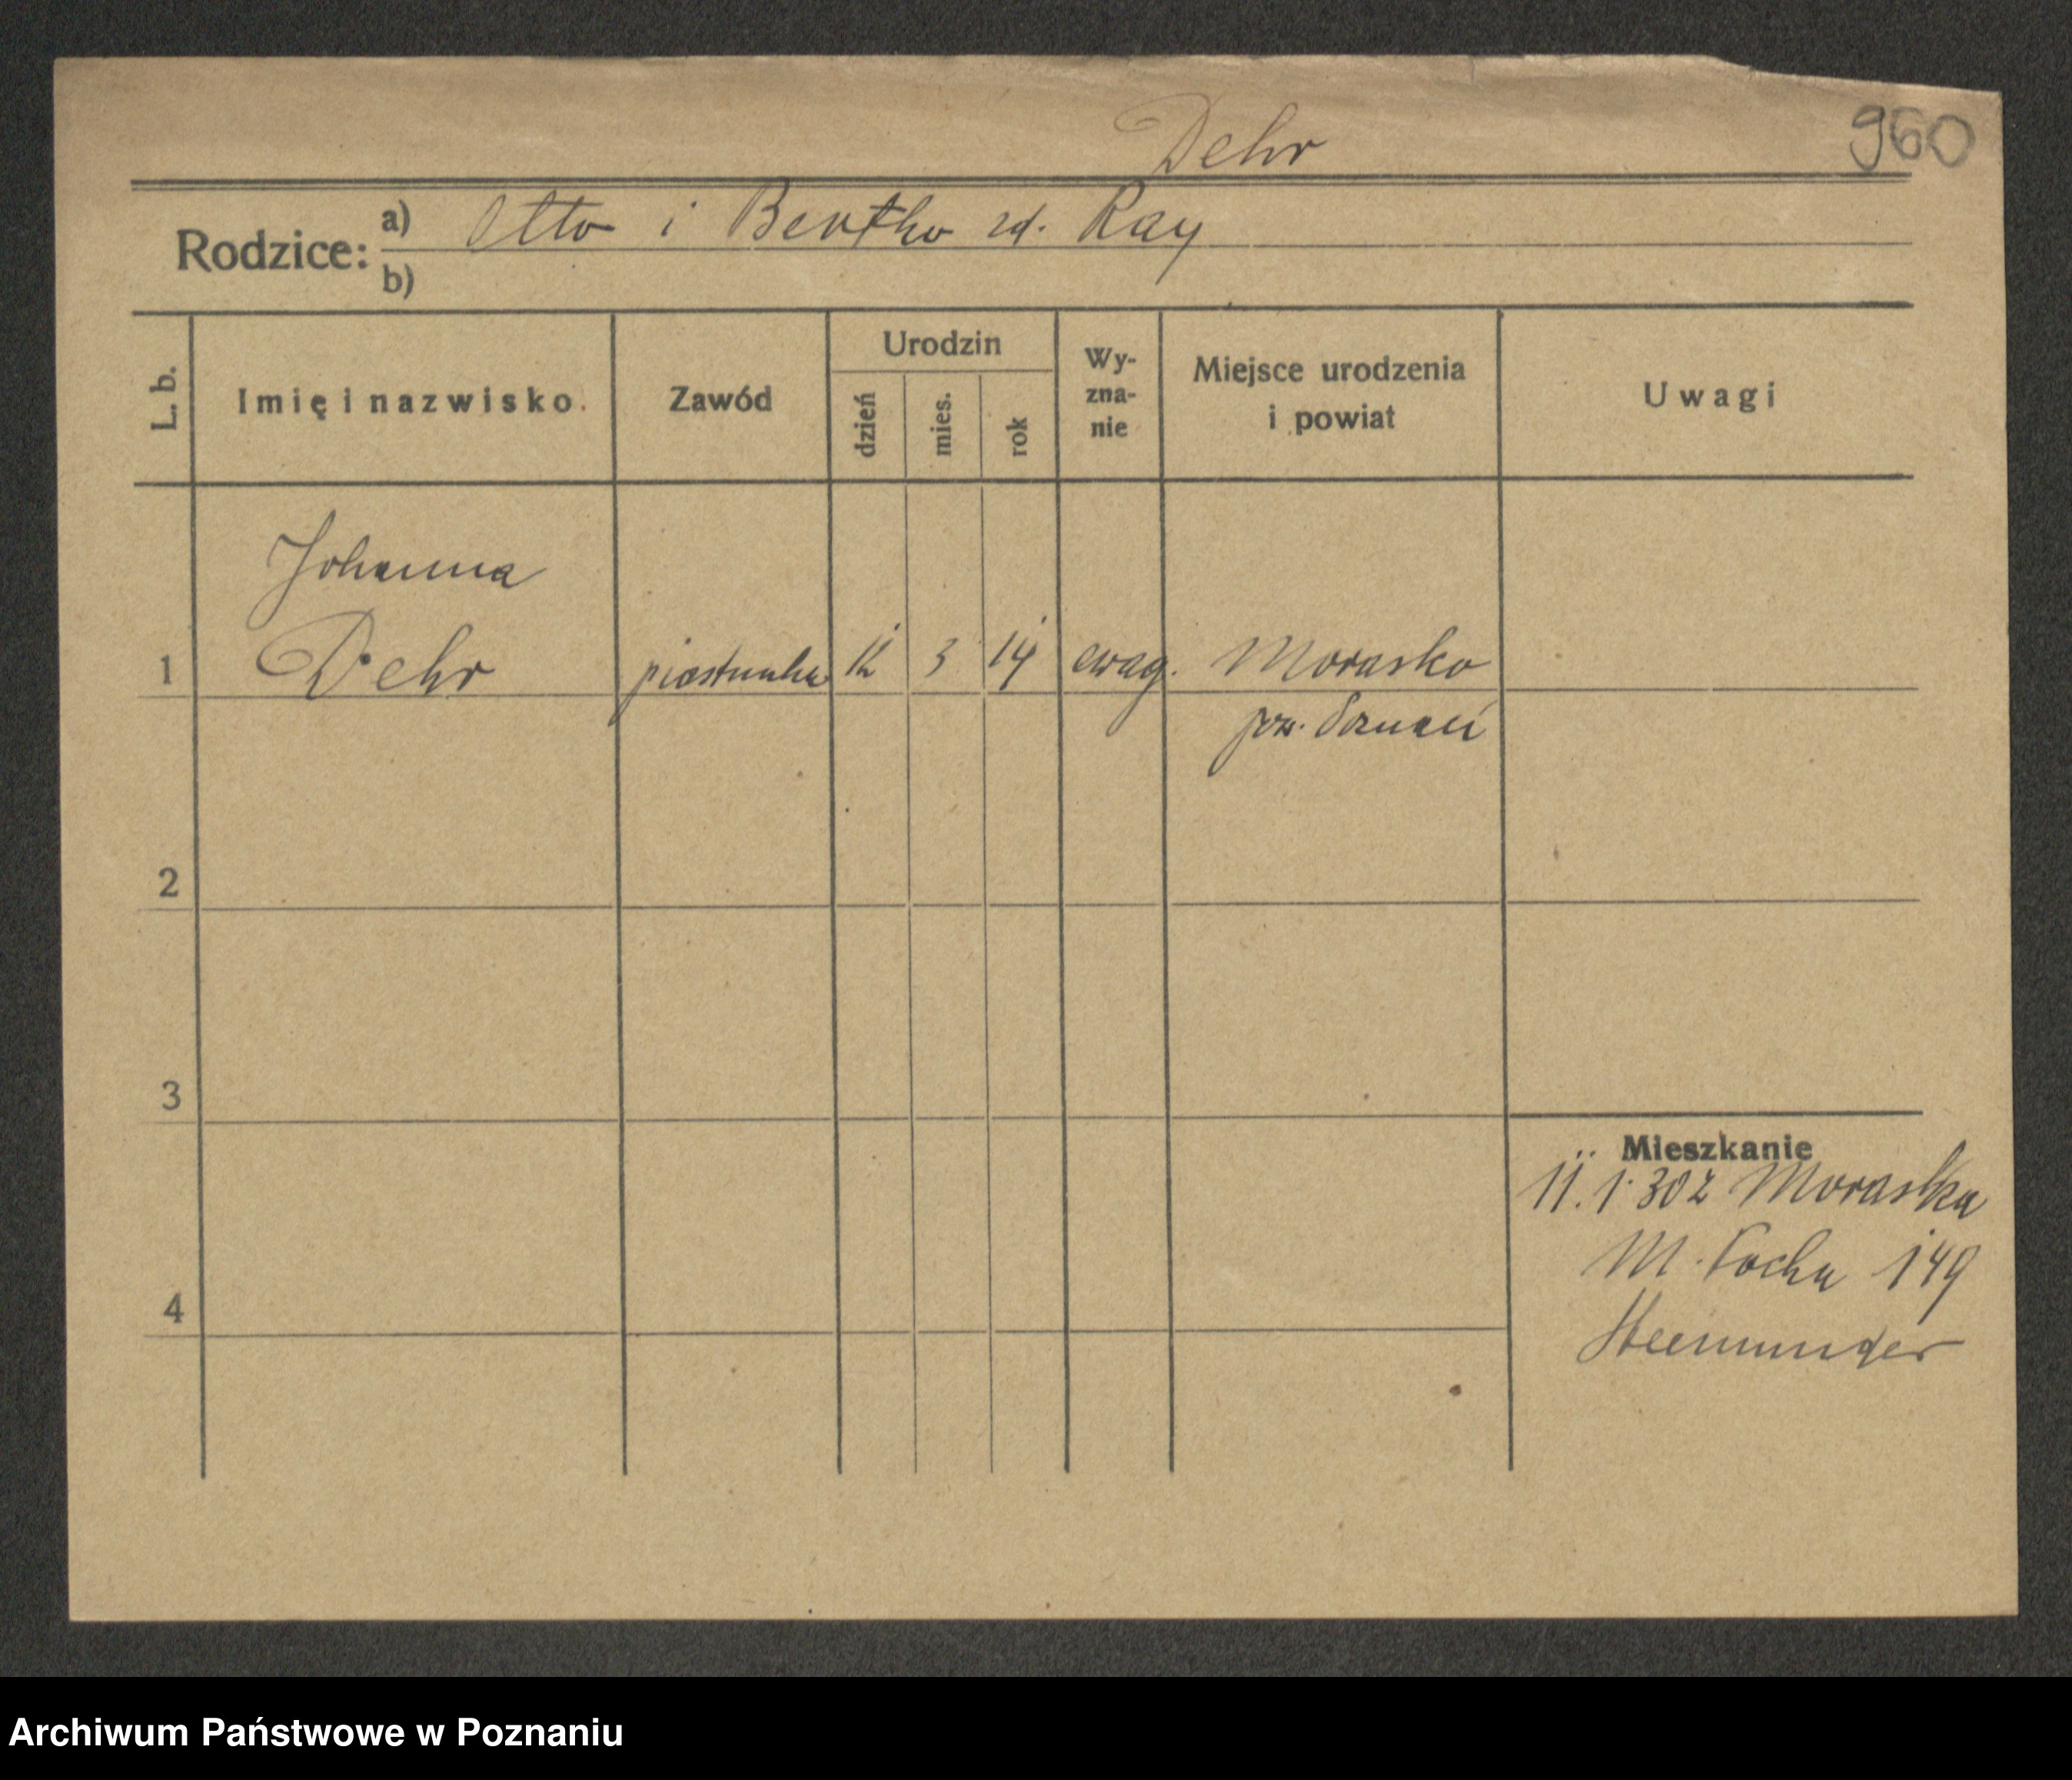 Dehr
960
Rodzice: a) Otto i Bertha zd. Ray
b)
L. b.
Imię i nazwisko.
Zawód
Urodzin
dzień
mies.
rok
Wy-
zna-
nie
Miejsce urodzenia
i powiat
Uwagi
Johanna
1 Dehr piastunka 12 3 14 ewag. Morasko
pow. Poznań
2
3
4
Mieszkanie
11. 1. 30 z Moraska
M. Focha 149
Archiwum Państwowe w Poznaniu